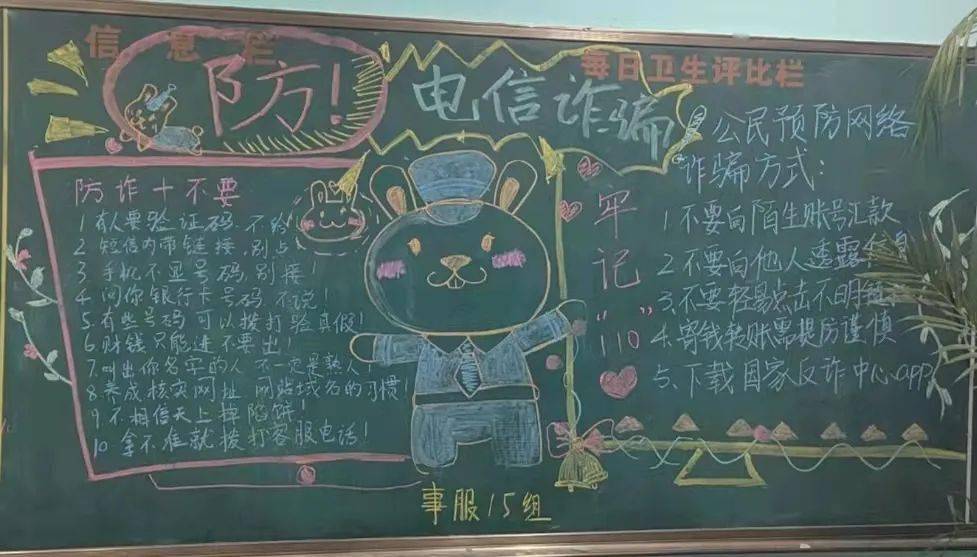 信息栏
每日卫生评比栏
防！
电信诈骗
防诈十不要
1.有人要验证码,不给
2.短信内带链接,别点
3.手机不显号码,别接！
4.问你银行卡号码 不说！
5.有些号码可以拨打验真假！
6.财钱只能进不要出！
7.叫出你名字的人 不一定是熟人！
8.养成核实网址 网站域名的习惯！
9.不相信天上掉陷饼！
10.拿不准就拨打客服电话！
牢记“110”
公民预防网络
诈骗方式：
1.不要向陌生账号汇款
2.不要向他人透露
3.不要轻易点击不明链
4.寄钱转账需提防谨慎
5、下载国家反诈中心app
事服15组